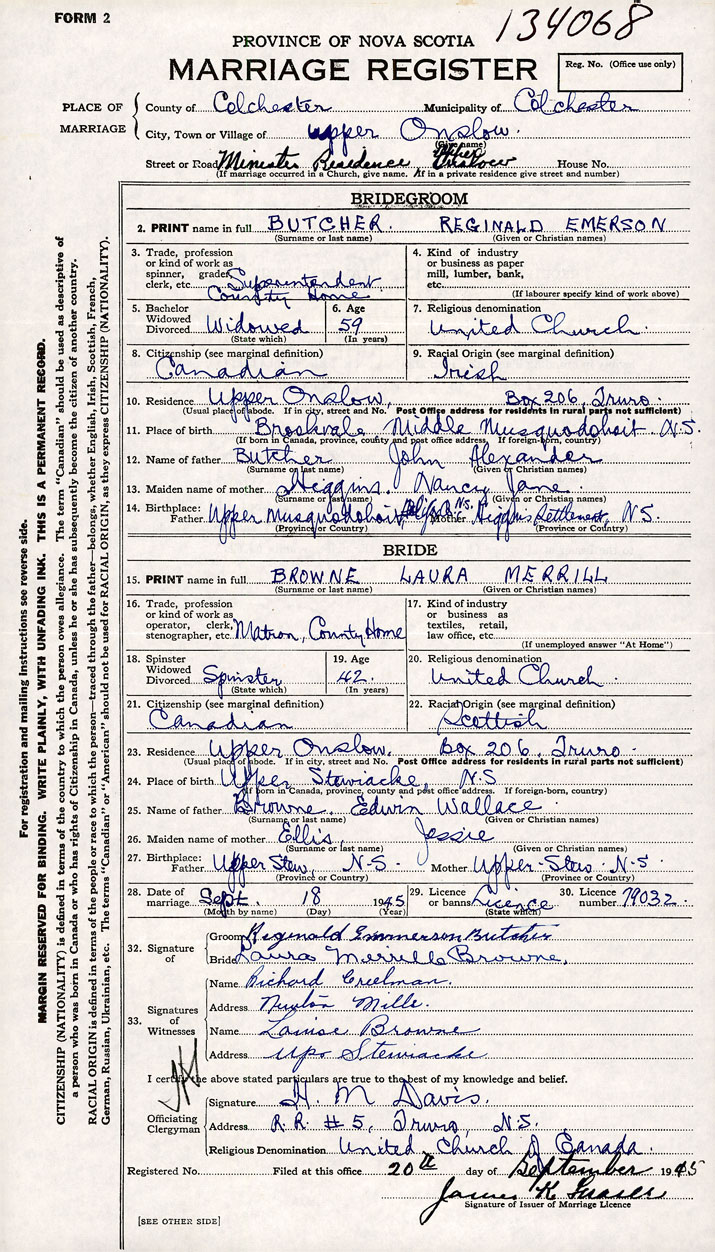 FORM 2
134068
PROVINCE OF NOVA SCOTIA
MARRIAGE REGISTER
Reg. No. (Office use only)
PLACE OF MARRIAGE
County of Colchester Municipality of Colchester
City, Town or Village of Upper Onslow.
(Give name)
Street or Road Minister Residence Upper Onslow House No.
(If marriage occurred in a Church, give name. If in a private residence give street and number)
BRIDEGROOM
2. PRINT name in full BUTCHER. REGINALD EMERSON
(Surname or last name) (Given or Christian names)
3. Trade, profession or kind of work as spinner, grader, clerk, etc. Superintendent County Home
4. Kind of industry or business as paper mill, lumber, bank, etc.
(If labourer specify kind of work above)
5. Bachelor Widowed Divorced Widowed (State which)
6. Age 59 (In years)
7. Religious denomination United Church.
8. Citizenship (see marginal definition) Canadian
9. Racial Origin (see marginal definition) Irish
10. Residence Upper Onslow, Box 206, Truro.
(Usual place of abode. If in city, street and No. Post Office address for residents in rural parts not sufficient)
11. Place of birth Brookvale Middle Musquodoboit. N.S.
(If born in Canada, province, county and post office address. If foreign-born, country)
12. Name of father Butcher John Alexander
(Surname or last name) (Given or Christian names)
13. Maiden name of mother Higgins. Nancy Jane
(Surname or last name) (Given or Christian names)
14. Birthplace: Father Upper Musquodoboit N.S. Mother Higgins Settlement, N.S.
(Province or Country) (Province or Country)
BRIDE
15. PRINT name in full BROWNE LAURA MERRILL
(Surname or last name) (Given or Christian names)
16. Trade, profession or kind of work as operator, clerk, stenographer, etc. Matron, County Home
17. Kind of industry or business as textiles, retail, law office, etc.
(If unemployed answer "At Home")
18. Spinster Widowed Divorced Spinster (State which)
19. Age 42. (In years)
20. Religious denomination United Church.
21. Citizenship (see marginal definition) Canadian
22. Racial Origin (see marginal definition) Scottish
23. Residence Upper Onslow. Box 206, Truro.
(Usual place of abode. If in city, street and No. Post Office address for residents in rural parts not sufficient)
24. Place of birth Upper Stewiacke, N.S
(If born in Canada, province, county and post office address. If foreign-born, country)
25. Name of father Browne. Edwin Wallace
(Surname or last name) (Given or Christian names)
26. Maiden name of mother Ellis. Jessie
(Surname or last name) (Given or Christian names)
27. Birthplace: Father Upper Stew. N.S. Mother Upper-Stew. N.S.
(Province or Country) (Province or Country)
28. Date of marriage Sept. 18 1945
(Month by name) (Day) (Year)
29. Licence or banns Licence (State which)
30. Licence number 79032.
32. Signature of
Groom Reginald Emmerson Butcher
Bride Laura Merrill Browne.
33. Signatures of Witnesses
Name Richard Creelman.
Address Newton Mills.
Name Louise Browne
Address Upr Stewiacke
I certify the above stated particulars are true to the best of my knowledge and belief.
Officiating Clergyman
Signature H. M Davis.
Address R.R. #5, Truro, N.S.
Religious Denomination United Church of Canada.
Registered No. Filed at this office 20th day of September 1945
James K Fraser
Signature of Issuer of Marriage Licence
[SEE OTHER SIDE]
For registration and mailing instructions see reverse side.
MARGIN RESERVED FOR BINDING. WRITE PLAINLY, WITH UNFADING INK. THIS IS A PERMANENT RECORD.
CITIZENSHIP (NATIONALITY) is defined in terms of the country to which the person owes allegiance. The term "Canadian" should be used as descriptive of
a person who was born in Canada or who has rights of Citizenship in Canada, unless he or she has subsequently become the citizen of another country.
RACIAL ORIGIN is defined in terms of the people or race to which the person—traced through the father—belongs, whether English, Irish, Scottish, French,
German, Russian, Ukrainian, etc. The terms "Canadian" or "American" should not be used for RACIAL ORIGIN, as they express CITIZENSHIP (NATIONALITY).